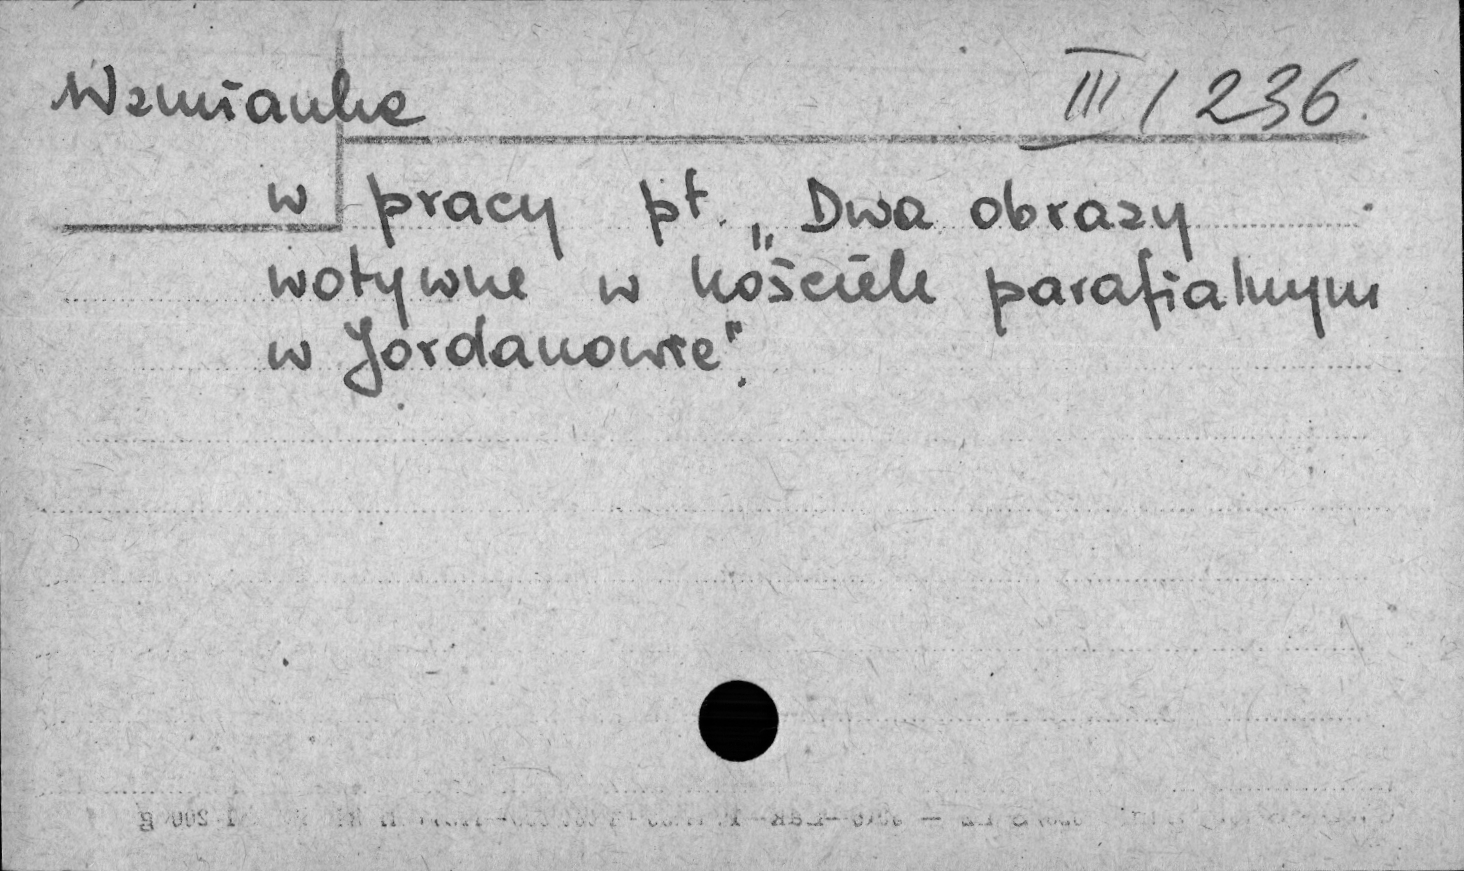 Wzmianka III/236.
w pracy pt. „Dwa obrazy
wotywne w kościele parafialnym
w Jordanowie".